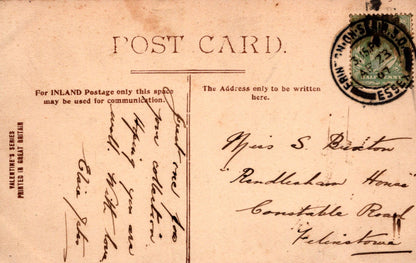 POST CARD.
For INLAND Postage only this space
may be used for communication.
The Address only to be written
here.
VALENTINE'S SERIES
PRINTED IN GREAT BRITAIN
Just one for
your collection
Hoping you are
well. With love
Elsie
Miss S. Buxton
"Rendlesham House"
Constable Road
Felixstowe
ESSEX